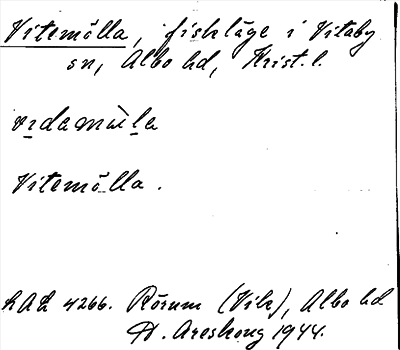 Vitemölla, fiskläge i Vitaby
sn, Albo hd, Krist. l.
Vitemölla.
LAL 4266. Rörum (Vik), Albo hd
A. Areskoug 1944.